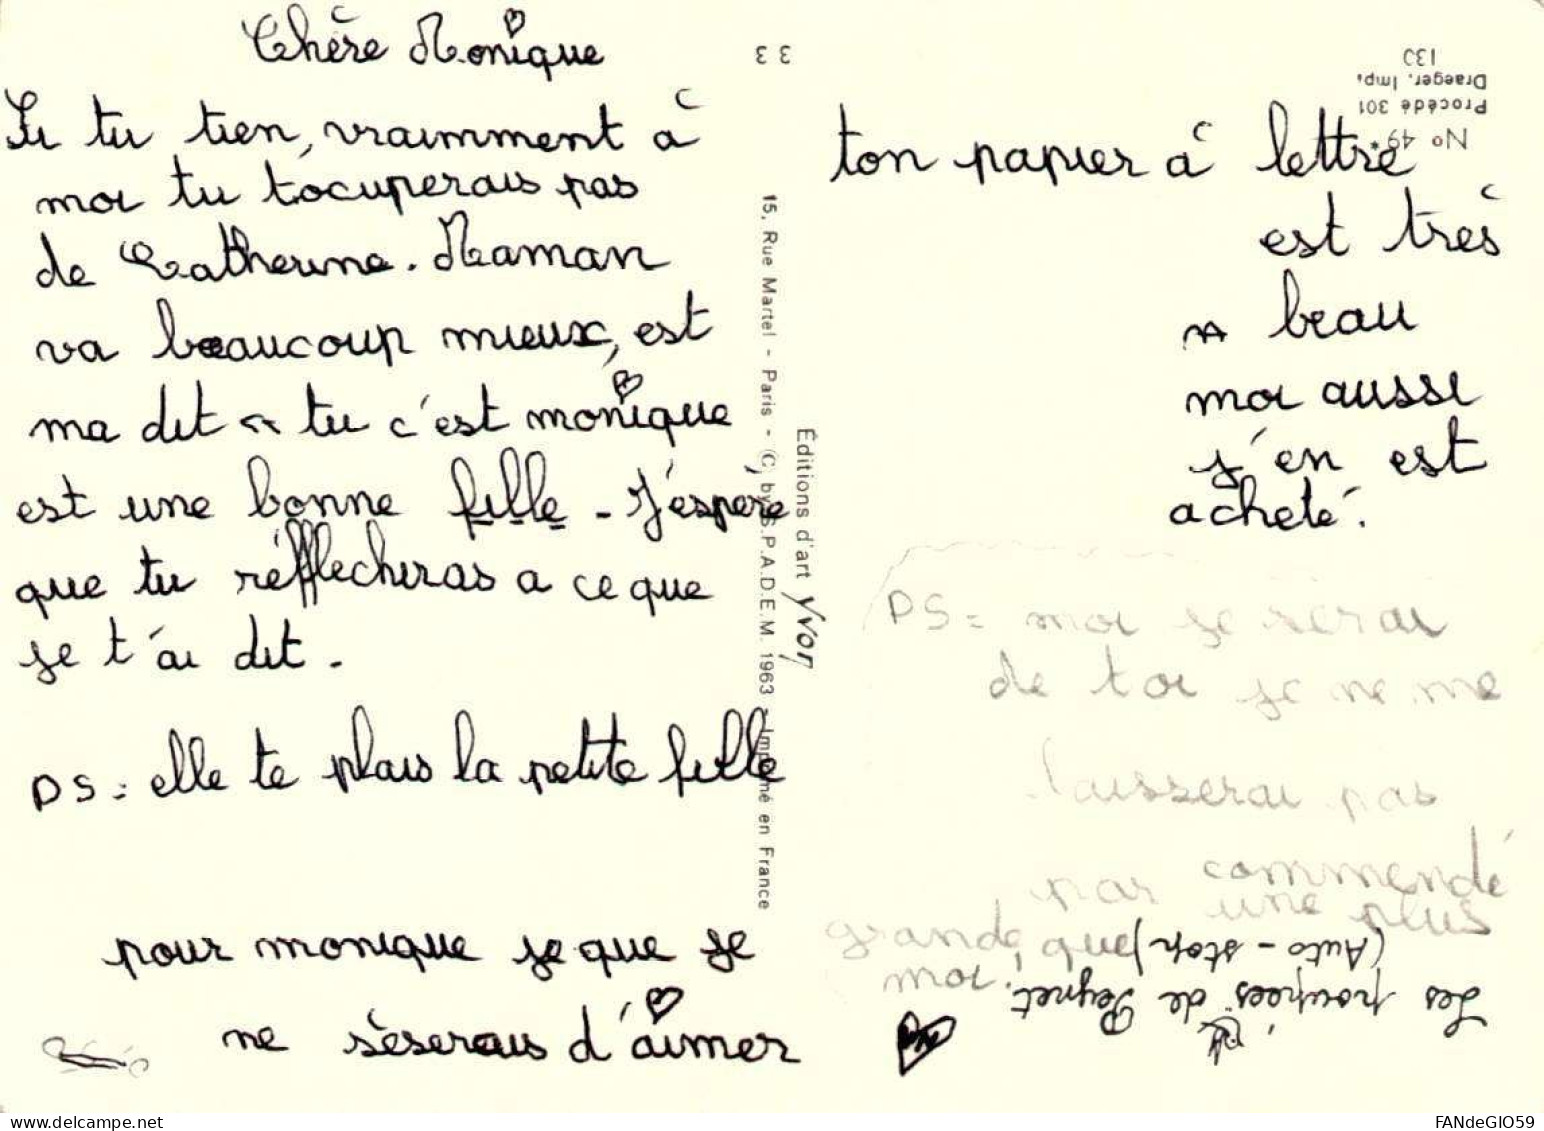 Chère Monique
Si tu tien, vraimment à
moi tu t'ocuperais pas
de Catherine. Maman
va beaucoup mieux, est
ma dit " tu c'est monique
est une bonne fille - J'espère
que tu réfflechiras a ce que
je t'ai dit.
PS = elle te plais la petite fille
pour monique je que je
ne sèserais d'aimer
ton papier à lettre
est très
beau
moi aussi
j'en est
acheté.
PS = moi je serai
de toi je ne me
laisserai pas
par commendé
une plus
grande que
moi.
Les poupées de Peynet
(Auto-stop)
3 3
130
Draeger, Imp.
Procédé 301
N° 49*
Éditions d'art Yvon
15, Rue Martel - Paris - © by S.P.A.D.E.M. 1963 - Imprimé en France
FANdeGIO59